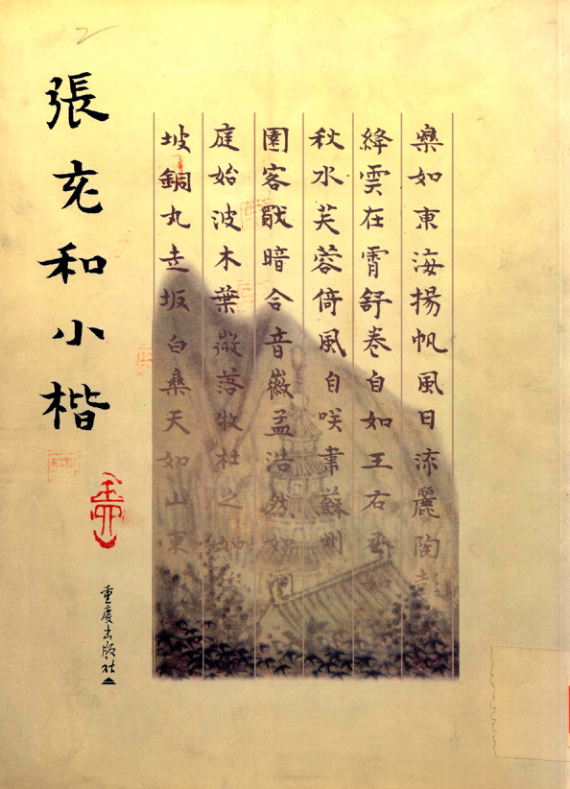 張充和小楷
重慶出版社
樂如東海揚帆風日流麗陶
絳雲在霄舒卷自如王右丞如
秋水芙蓉倚風自咲韋蘇州
園客暗合音徽孟浩然
庭始波木葉微落牧杜之如
坡銅丸走坂白樂天如山東